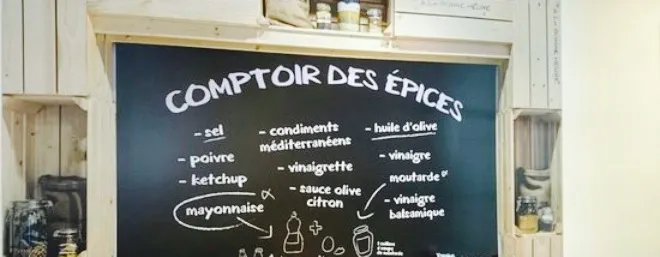 COMPTOIR DES ÉPICES
- sel
- poivre
- ketchup
mayonnaise
- condiments
méditerranéens
- vinaigrette
- sauce olive
citron
- huile d'olive
- vinaigre
moutarde
- vinaigre
balsamique
+